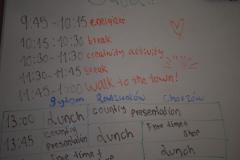 9:45 - 10:15 energizer
10:15 - 10:30 break
10:30 - 11:30 creativity activity
11:30 - 11:45 break
11:45 - 13:00 walk to the town!
Bytom Radzionków Chorzów
13:00 Lunch country presentation
13:45 country presentation Lunch Free time +
Free time + Lunch